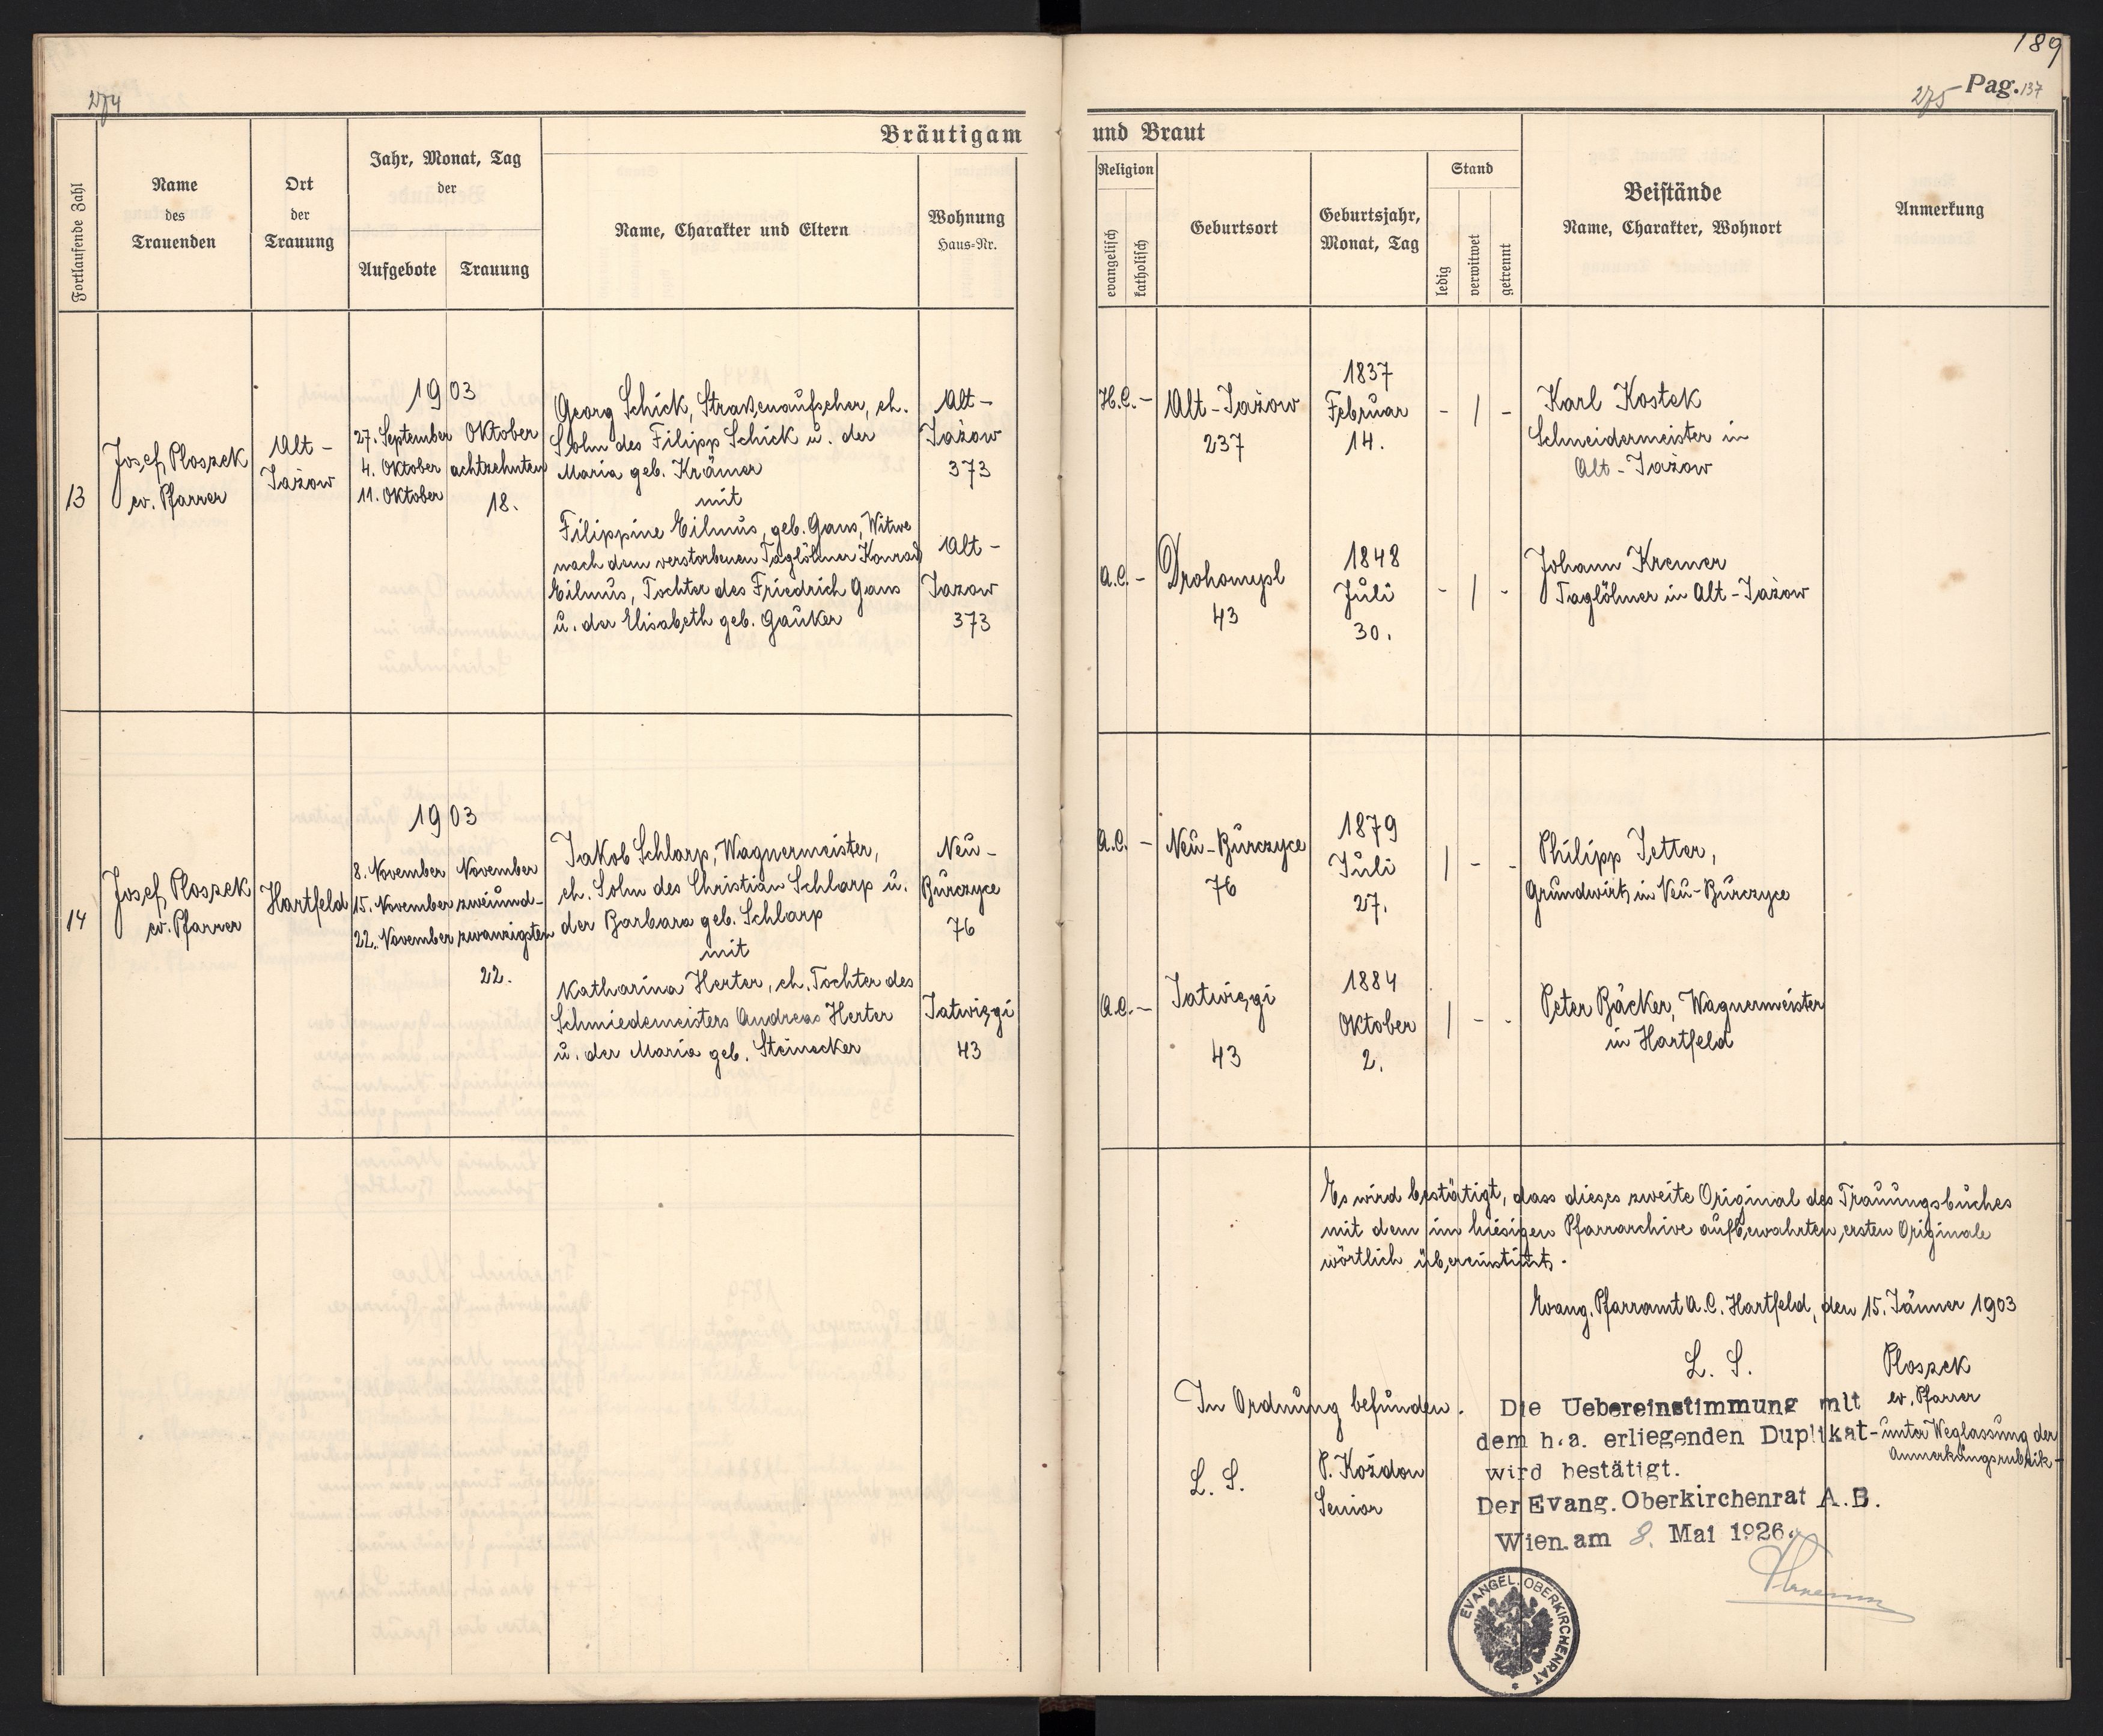 274
189
275 Pag. 137
Bräutigam und Braut
Fortlaufende Zahl
Name
des
Trauenden
Ort
der
Trauung
Jahr, Monat, Tag
der
Aufgebote
Trauung
Name, Charakter und Eltern
Wohnung
Haus-Nr.
Religion
evangelisch
katholisch
Geburtsort
Geburtsjahr,
Monat, Tag
Stand
ledig
verwitwet
getrennt
Beistände
Name, Charakter, Wohnort
Anmerkung
13
Josef Ploszek
ev. Pfarrer
Alt-
Jażow
1903
27. September
4. Oktober
11. Oktober
Oktober
achtzehnten
18.
Georg Schick, Straßenaufseher, eh.
Sohn des Filipp Schick u. der
Maria geb. Krämer
mit
Filippine Eilmus, geb. Gans, Witwe
nach dem verstorbenen Taglöhner Konrad
Eilmus, Tochter des Friedrich Gans
u. der Elisabeth geb. Gauker
Alt-
Jażow
373
Alt-
Jazow
373
H.C. -
Alt-Jażow
237
1837
Februar
14.
- | -
Karl Kostek
Schneidermeister in
Alt-Jażow
A.C. -
Drohomysl
43
1848
Juli
30.
- | -
Johann Kremer
Taglöhner in Alt-Jażow
14
Josef Ploszek
ev. Pfarrer
Hartfeld
1903
8. November
15. November
22. November
November
zweiund-
zwanzigsten
22.
Jakob Schlarp, Wagnermeister,
eh. Sohn des Christian Schlarp u.
der Barbara geb. Schlarp
mit
Katharina Herter, eh. Tochter des
Schmiedemeisters Andreas Herter
u. der Maria geb. Steinecker
Neu-
Burczyce
76
Jatwięgi
43
A.C. -
Neu-Burczyce
76
1879
Juli
27.
| - -
Philipp Jetter,
Grundwirt, in Neu-Burczyce
A.C. -
Jatwięgi
43
1884
Oktober
2.
| - -
Peter Bäcker, Wagnermeister
in Hartfeld
Es wird bestätigt, dass dieses zweite Original des Trauungsbuches
mit dem im hiesigen Pfarrarchive aufbewahrten, ersten Originale
wörtlich übereinstimt.
Evang. Pfarramt A.C. Hartfeld, den 15. Jänner 1903
L. S.
Ploszek
ev. Pfarrer
In Ordnung befunden.
L. S.
P. Kożdon
Senior
Die Uebereinstimmung mit
dem h.a. erliegenden Duplikat - unter Weglassung der
Anmerkungsrubrik -
wird bestätigt.
Der Evang. Oberkirchenrat A.B.
Wien am 8. Mai 1926.
EVANGEL. OBERKIRCHENRAT